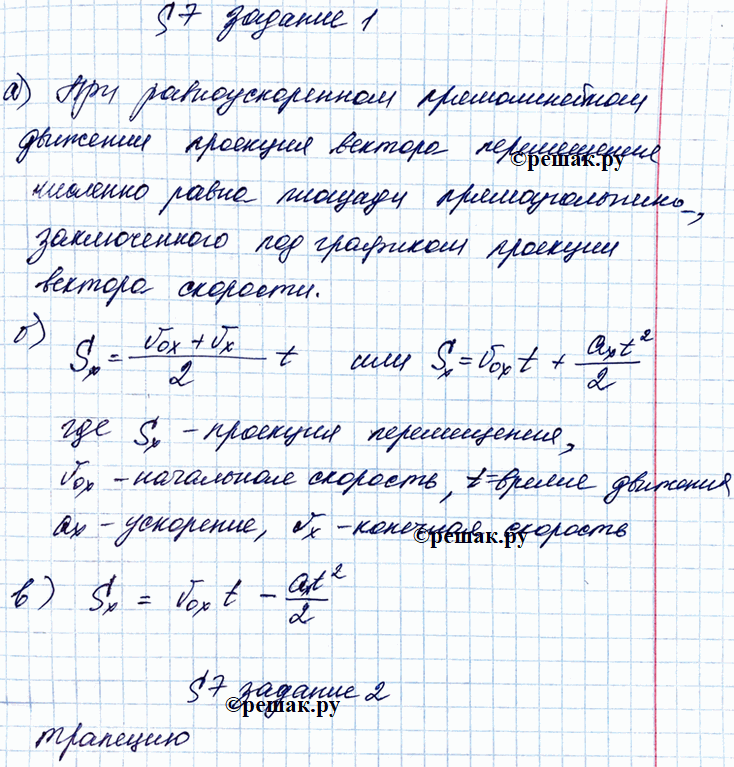 §7 задание 1
а) При равноускоренном прямолинейном
движении проекция вектора перемещения
©решак.ру
численно равна площади прямоугольника,
заключенного под графиком проекции
вектора скорости.
б) Sₓ = (v₀ₓ + vₓ)/2 t или Sₓ = v₀ₓ t + aₓt²/2
где Sₓ – проекция перемещения,
v₀ₓ – начальная скорость, t – время движения
aₓ – ускорение, vₓ – конечная скорость
©решак.ру
в) Sₓ = v₀ₓ t – aₓt²/2
§7 задание 2
©решак.ру
трапецию